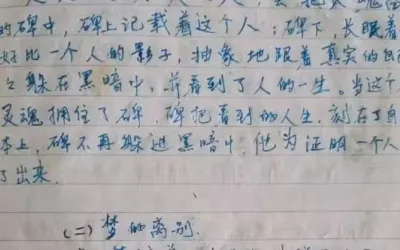 的碑中，碑上记载着这个人；碑下，长眠着
好比一个人的影子，抽象地跟着真实的自
躲在黑暗中，并看到了人的一生。当这个
灵魂拥住了碑，碑把看到的人生，刻在了自
本上，碑不再躲进黑暗中，他为证明一个人
了出来。
(二) 梦的离别.